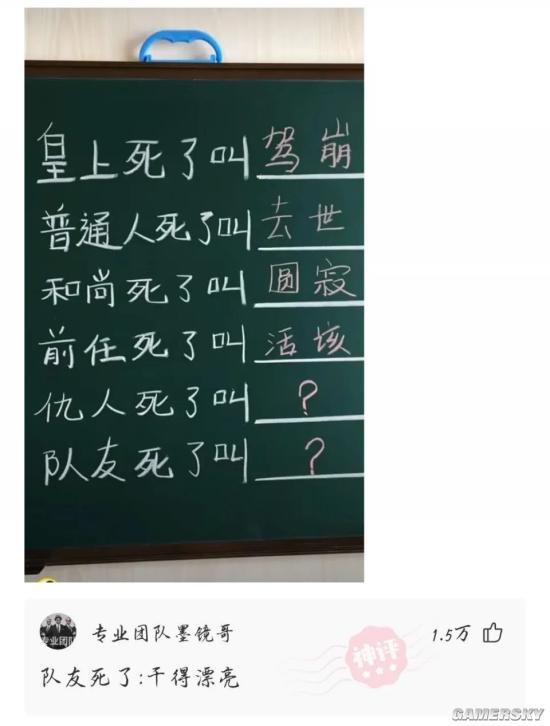 皇上死了叫驾崩
普通人死了叫去世
和尚死了叫圆寂
前任死了叫活该
仇人死了叫？
队友死了叫？
专业团队
专业团队墨镜哥
神评
1.5万
队友死了:干得漂亮
GAMERSKY